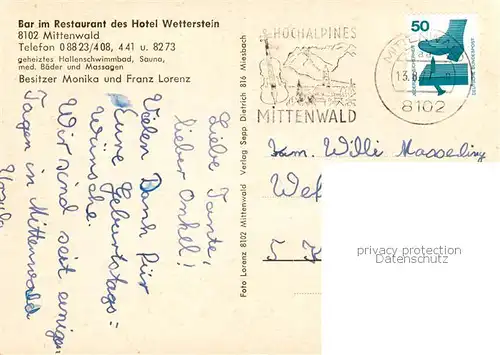 Bar im Restaurant des Hotel Wetterstein
8102 Mittenwald
Telefon 0 88 23/4 08, 4 41 u. 82 73
geheiztes Hallenschwimmbad, Sauna,
med. Bäder und Massagen
Besitzer Monika und Franz Lorenz
Liebe Tante,
lieber Onkel!
Vielen Dank für
Eure Geburtstags=
wünsche.
Wir sind seit einigen
Tagen in Mittenwald
Ursula
Foto Lorenz 8102 Mittenwald Verlag Sepp Dietrich 816 Miesbach
HOCHALPINES
MITTENWALD
8102
50
DEUTSCHE BUNDESPOST
Fam. Willi Masserling
5
privacy protection
Datenschutz